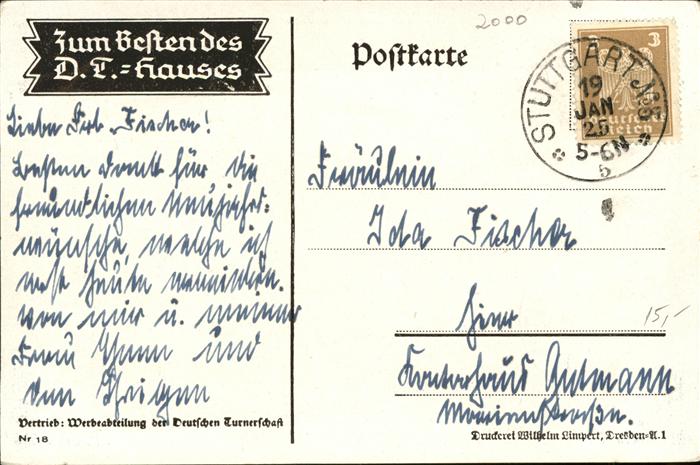 Zum Besten des
D. T.=Hauses
Postkarte
2000
3 3
Deutsches
Reich
STUTTGART No 9
19
JAN
25
5-6N
b
Liebe Frl. Fischer!
Besten Dank für die
freundlichen Neujahrs-
wünsche, welche ich
erst heute erwidere.
von mir u. meiner
Frau und
den
Fräulein
Ida Fischer
hier
15,-
Kontorhaus Gutmann
Marienstraße.
Vertrieb: Werbeabteilung der Deutschen Turnerschaft
Nr 18
Druckerei Wilhelm Limpert, Dresden=A.1